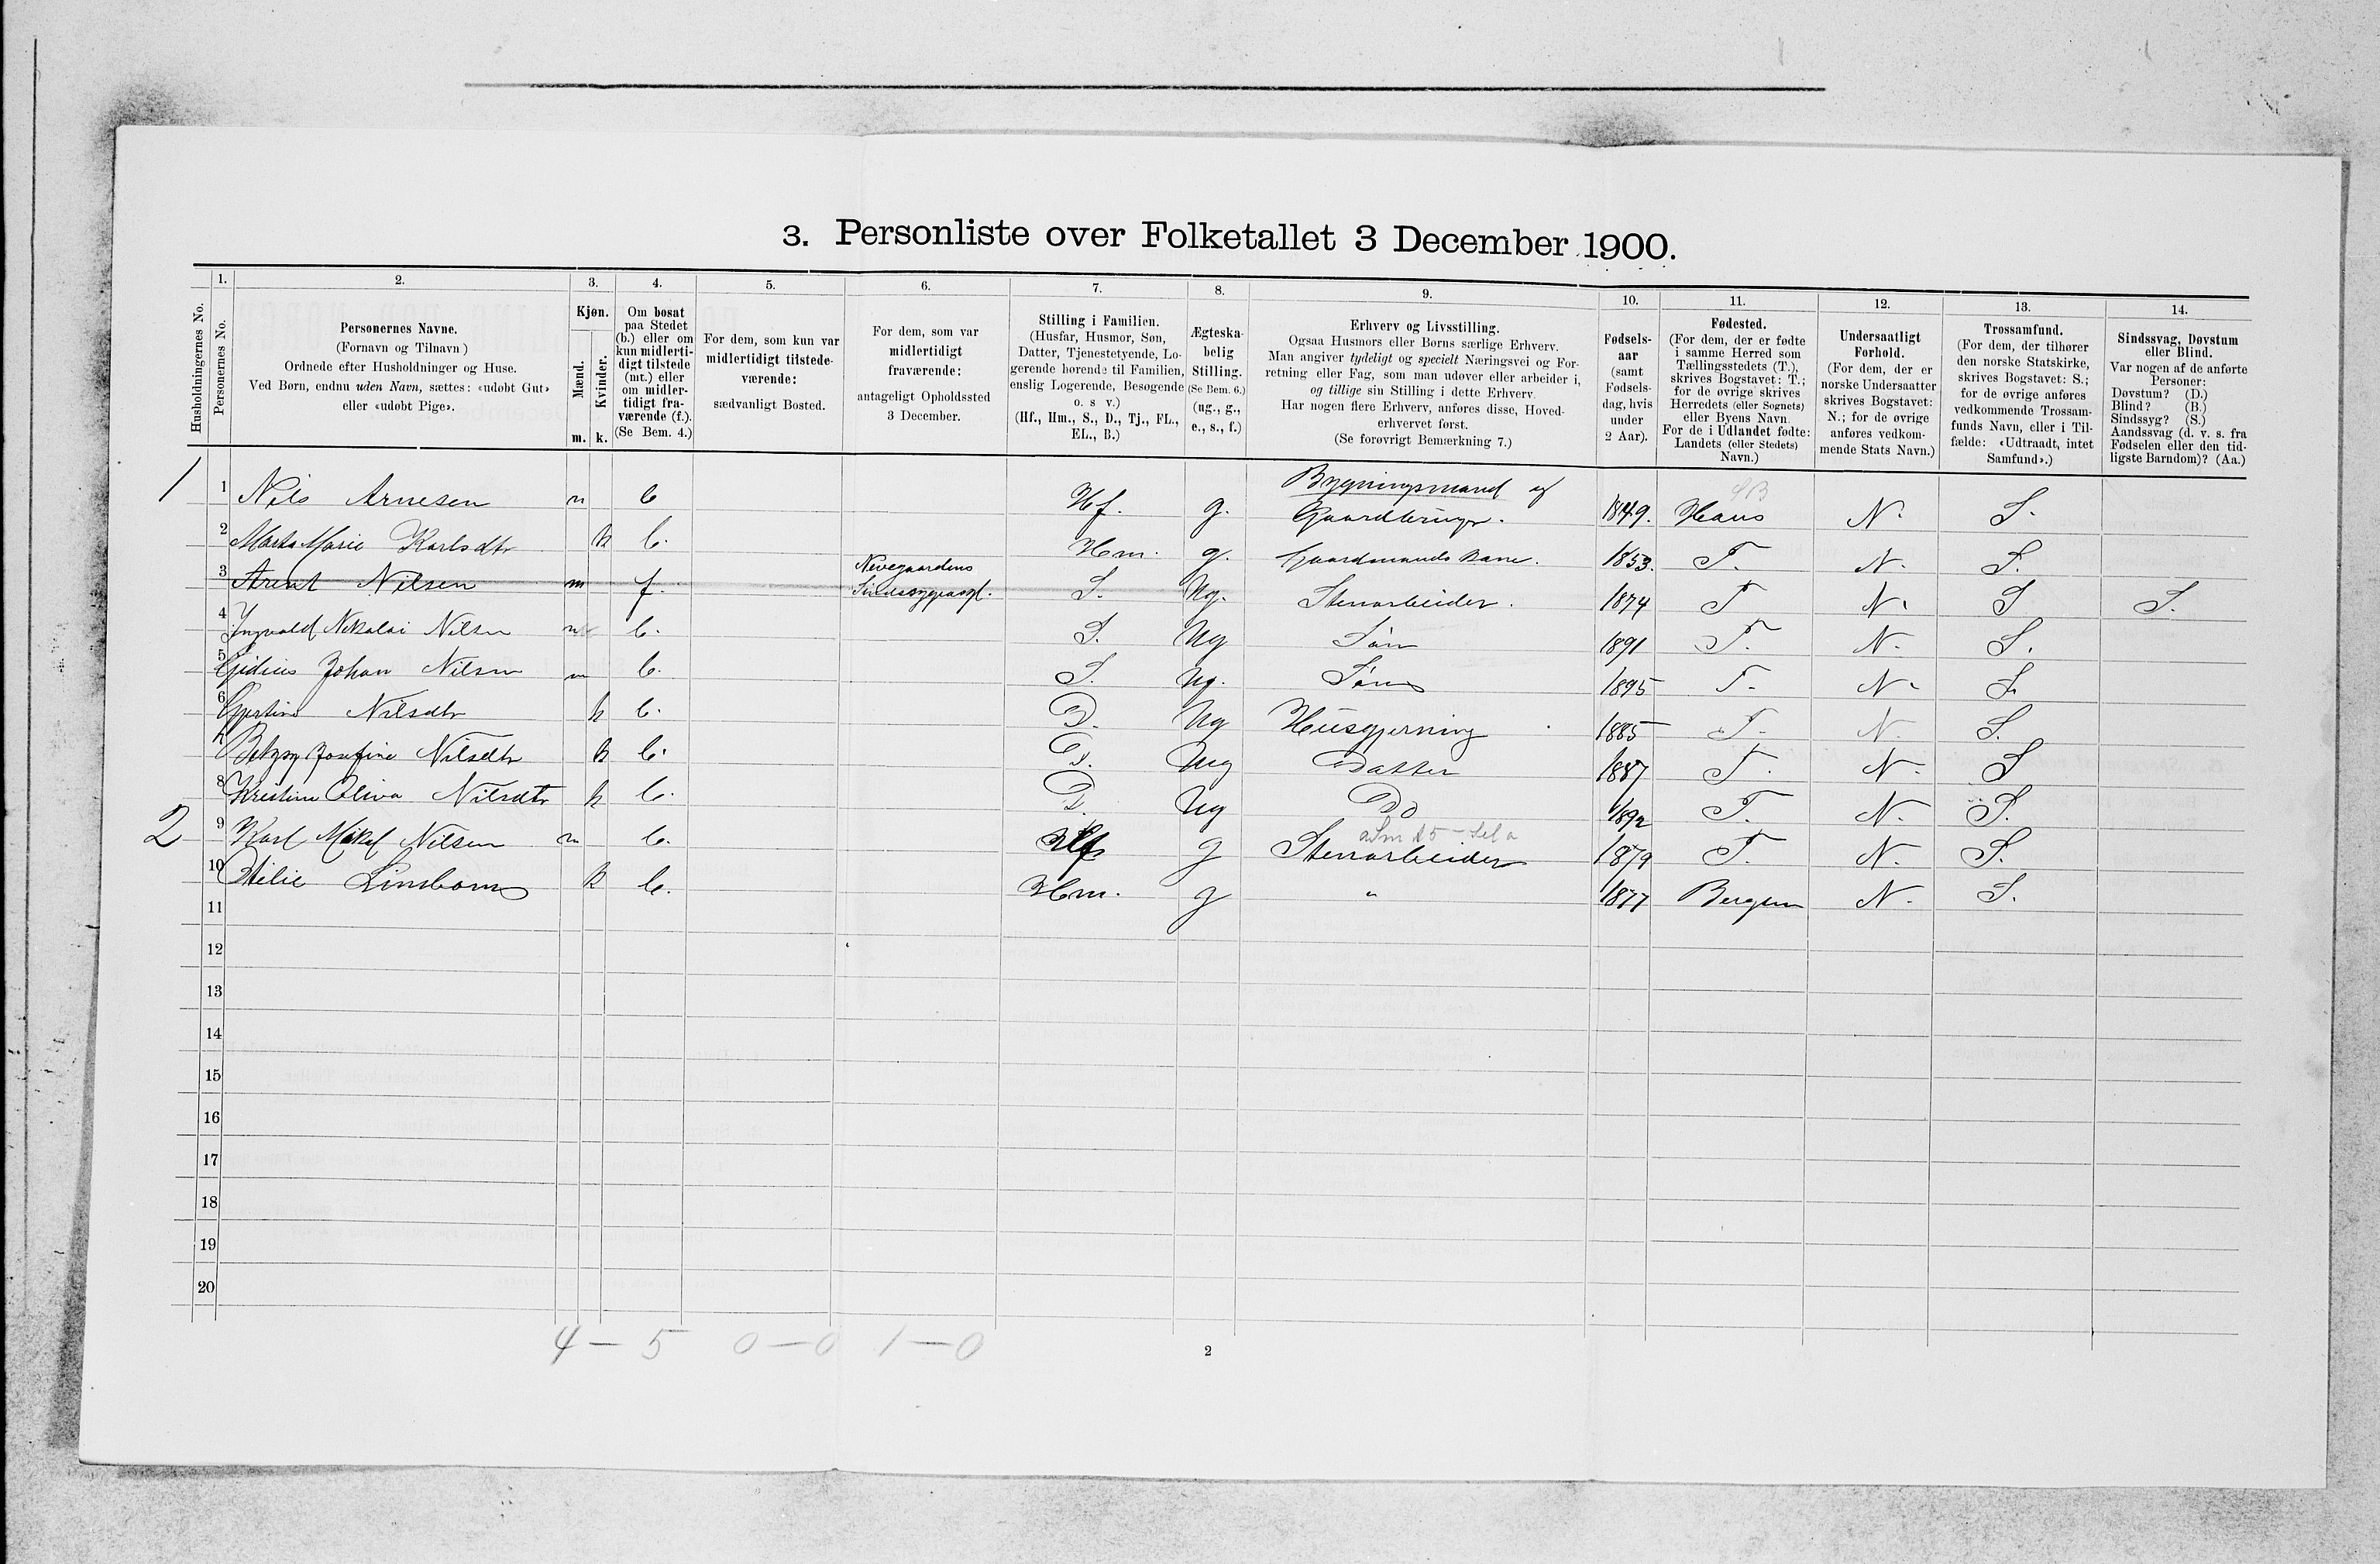 3. Personliste over Folketallet 3 December 1900.
Husholdningernes No.
1.
Personernes No.
2.
Personernes Navne.
(Fornavn og Tilnavn)
Ordnede efter Husholdninger og Huse.
Ved Børn, endnu uden Navn, sættes: «udøbt Gut»
eller «udøbt Pige».
3.
Kjøn.
Mænd.
Kvinder.
m.
k.
4.
Om bosat
paa Stedet
(b.) eller om
kun midlerti-
digt tilstede
(mt.) eller
om midler-
tidigt fra-
værende (f.).
(Se Bem. 4.)
5.
For dem, som kun var
midlertidigt tilstede-
værende:
sædvanligt Bosted.
6.
For dem, som var
midlertidigt
fraværende:
antageligt Opholdssted
3 December.
7.
Stilling i Familien.
(Husfar, Husmor, Søn,
Datter, Tjenestetyende, Lo-
gerende hørende til Familien,
enslig Logerende, Besøgende
o. s v.)
(Hf., Hm., S., D., Tj., FL.,
EL., B.)
8.
Ægteska-
belig
Stilling.
(Se Bem. 6.)
(ug., g.,
e., s., f.)
9.
Erhverv og Livsstilling.
Ogsaa Husmors eller Børns særlige Erhverv.
Man angiver tydeligt og specielt Næringsvei og For-
retning eller Fag, som man udøver eller arbeider i,
og tillige sin Stilling i dette Erhverv.
Har nogen flere Erhverv, anføres disse, Hoved-
erhvervet først.
(Se forøvrigt Bemærkning 7.)
10.
Fødsels-
aar
(samt
Fødsels-
dag, hvis
under
2 Aar).
11.
Fødested.
(For dem, der er fødte
i samme Herred som
Tællingsstedets (T.),
skrives Bogstavet: T.;
for de øvrige skrives
Herredets (eller Sognets)
eller Byens Navn
For de i Udlandet fødte:
Landets (eller Stedets)
Navn.)
12.
Undersaatligt
Forhold.
(For dem, der er
norske Undersaatter
skrives Bogstavet:
N.; for de øvrige
anføres vedkom-
mende Stats Navn.)
13.
Trossamfund.
(For dem, der tilhører
den norske Statskirke,
skrives Bogstavet: S.;
for de øvrige anføres
vedkommende Trossam-
funds Navn, eller i Til-
fælde: «Udtraadt, intet
Samfund».)
14.
Sindssvag, Døvstum
eller Blind.
Var nogen af de anførte
Personer:
Døvstum? (D.)
Blind? (B.)
Sindssyg? (S.)
Aandssvag (d. v. s. fra
Fødselen eller den tid-
ligste Barndom)? (Aa.)
1 1 Nils Arnesen m b Hf. g. Bygningsmand og Gaardbruger. 1849. Haus N. S.
2 Marta Marie Karlsdtr k b. Hm. g. Gaardmands kone. 1853. T. N. S.
3 Arent Nilsen m f. Nevegaardens Sindssygeasyl. S. Ug. Stenarbeider. 1874 T N. S S.
4 Ingvald Nikolai Nilsen m b. S. Ug Søn 1891 T. N. S.
5 Gidius Johan Nilsen m b. S. Ug. Søn 1895 T. N. S.
6 Gjertine Nilsdtr k b. D. Ug Husgjerning 1885 T. N. S.
7 Josefine Nilsdtr k b. D. Ug Datter 1887 T. N. S
8 Kristine Oliva Nilsdtr k b. D. Ug Do 1892 T. N. S.
2 9 Karl Mikal Nilsen m b. Hf g Stenarbeider 1879 T. N. S.
10 Otilie k b. Hm. g " 1877 Bergen N. S.
11
12
13
14
15
16
17
18
19
20
4 — 5 0 — 0 1 — 0
2